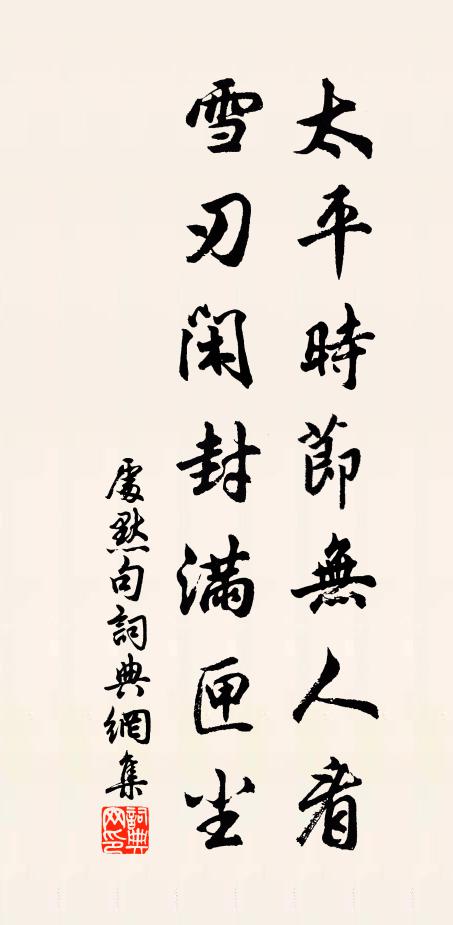 太平時節無人看
雪刃閑封滿匣尘
處默句詞典網集
詞典网印